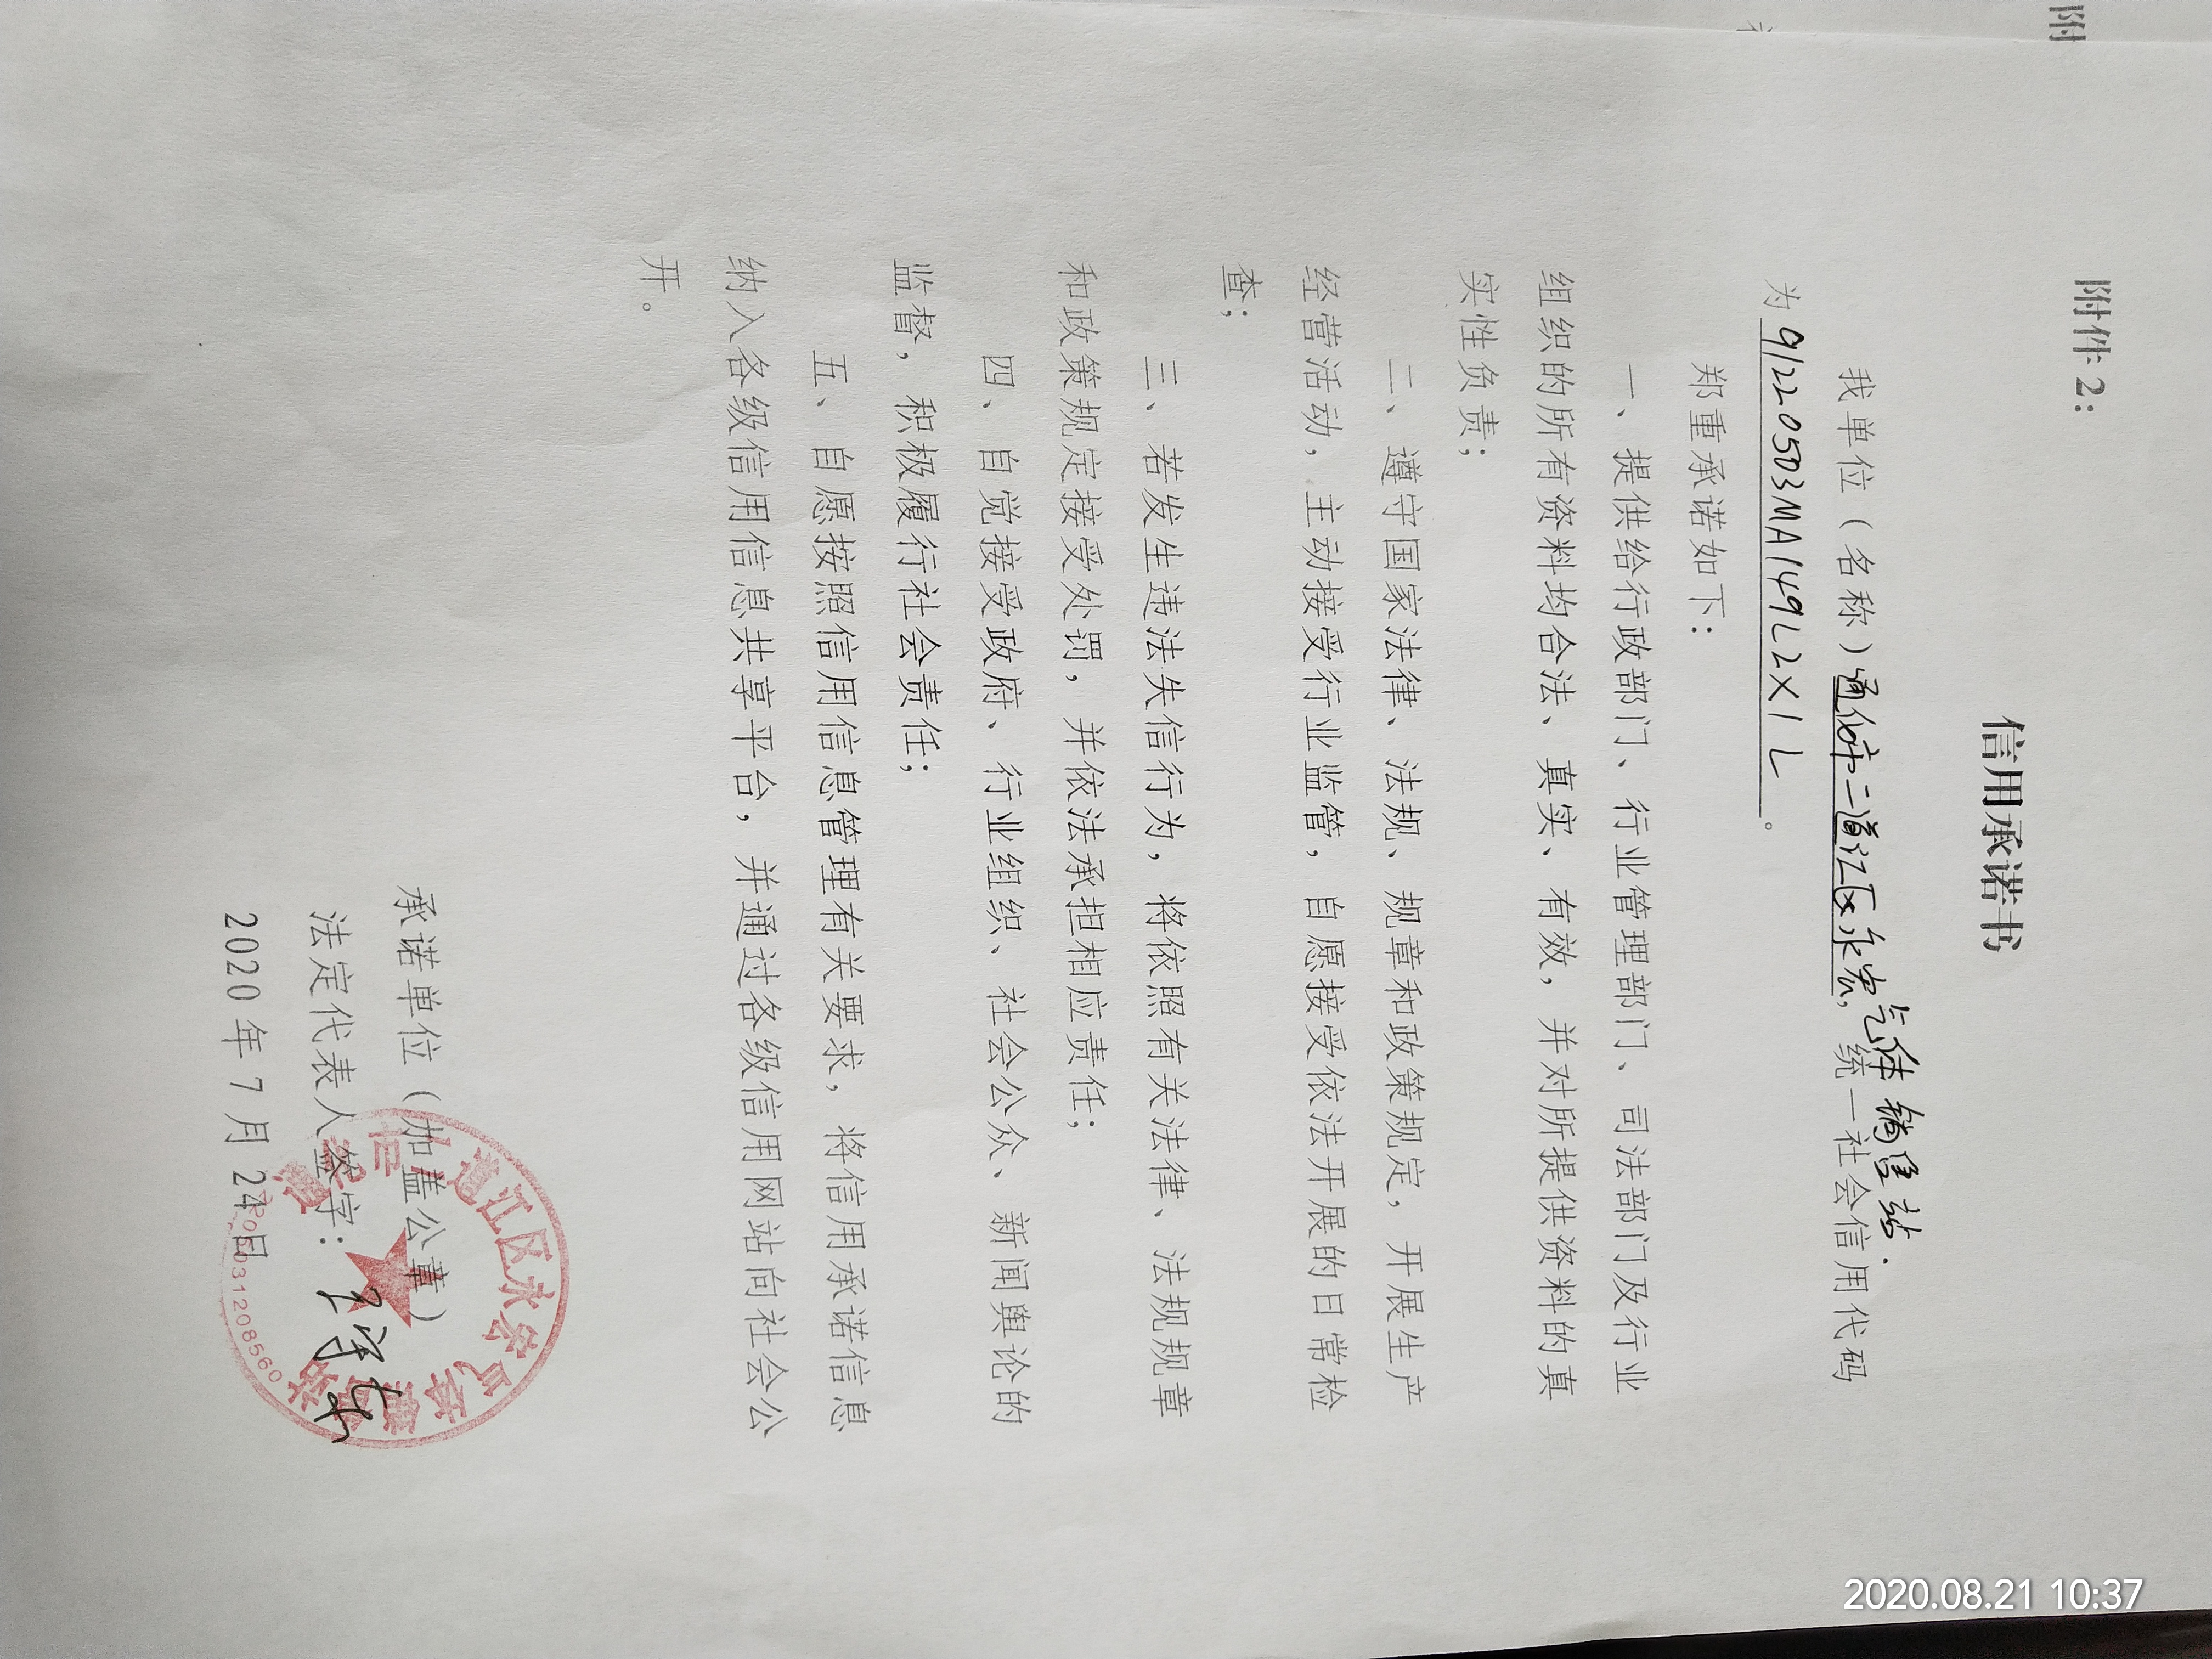 附件 2：
信用承诺书
我单位（名称）通化市二道江区永宏气体销售站，统一社会信用代码
为91220503MA149L2X1L。
郑重承诺如下：
一、提供给行政部门、行业管理部门、司法部门及行业
组织的所有资料均合法、真实、有效，并对所提供资料的真
实性负责；
二、遵守国家法律、法规、规章和政策规定，开展生产
经营活动，主动接受行业监管，自愿接受依法开展的日常检
查；
三、若发生违法失信行为，将依照有关法律、法规规章
和政策规定接受处罚，并依法承担相应责任；
四、自觉接受政府、行业组织、社会公众、新闻舆论的
监督，积极履行社会责任；
五、自愿按照信用信息管理有关要求，将信用承诺信息
纳入各级信用信息共享平台，并通过各级信用网站向社会公
开。
承诺单位（加盖公章）
法定代表人签字：
2020 年 7 月 24日
2020.08.21 10:37